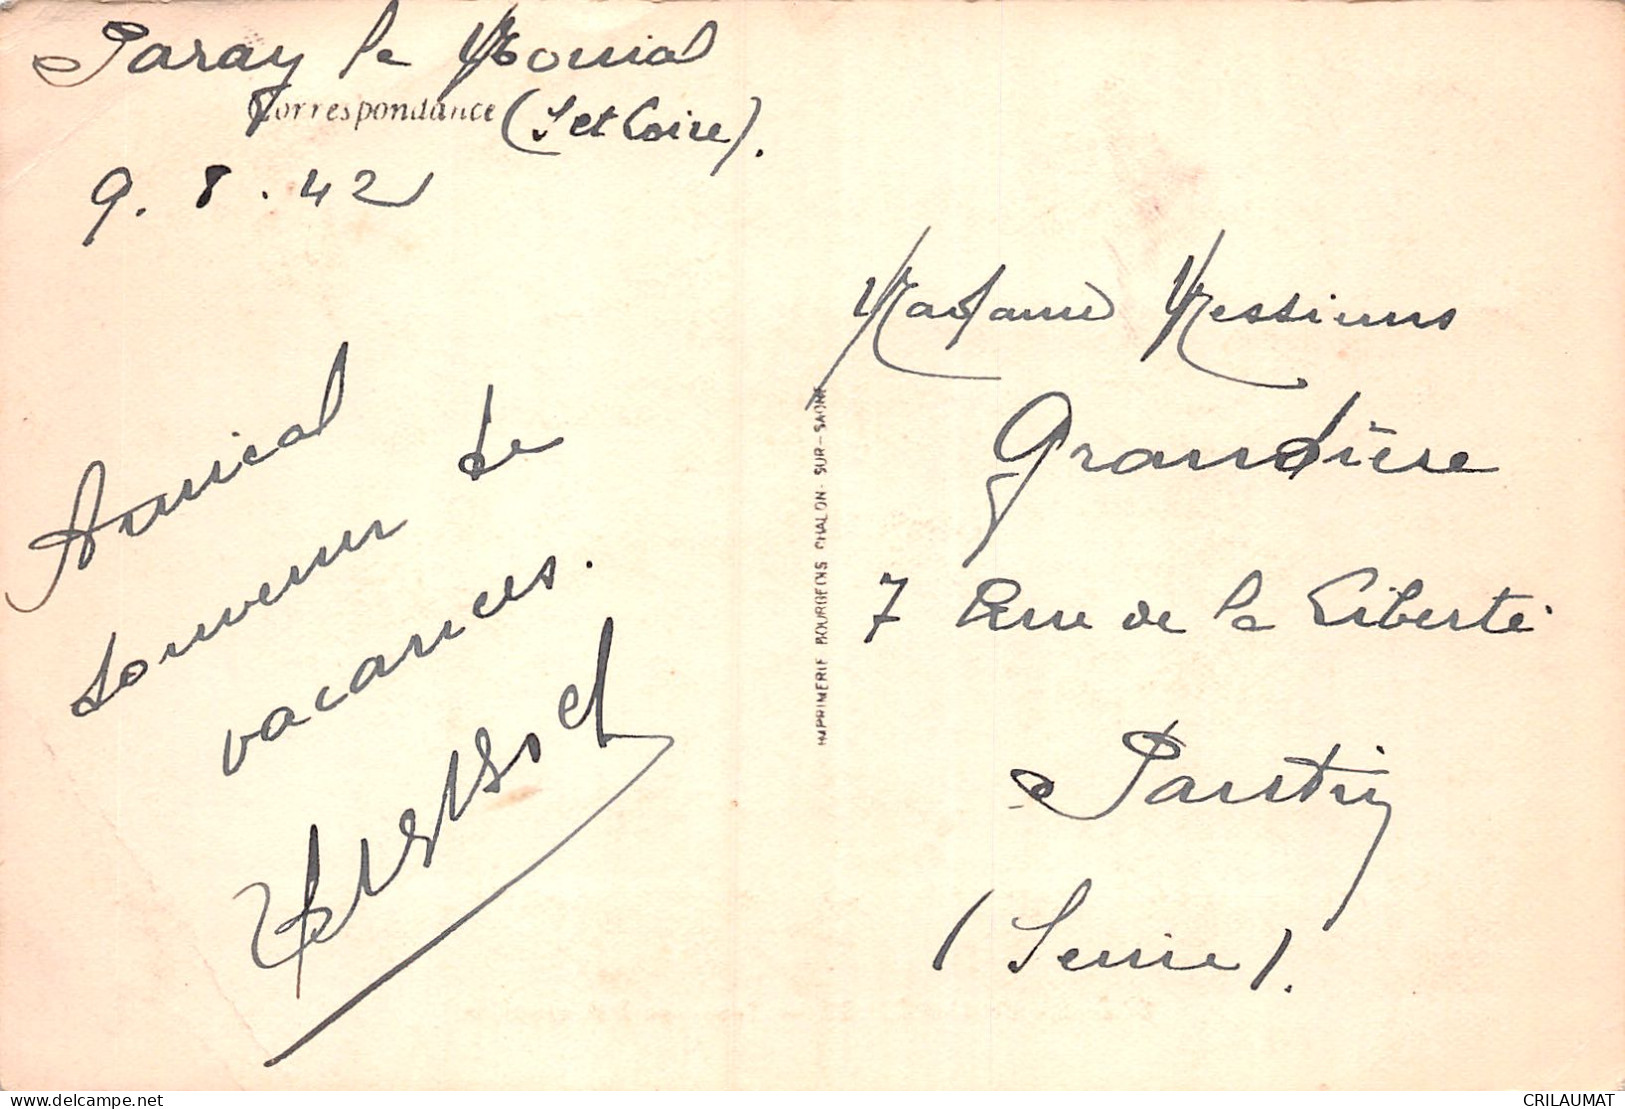 Paray le Monial
Correspondance (S et Loire).
9.8.42
Amical
souvenir de
vacances.
Madame Messiens
Grandière
7 Rue de la Liberté
Pantin
(Seine).
IMPRIMERIE BOURGEOIS CHALON-SUR-SAONE
CRILAUMAT